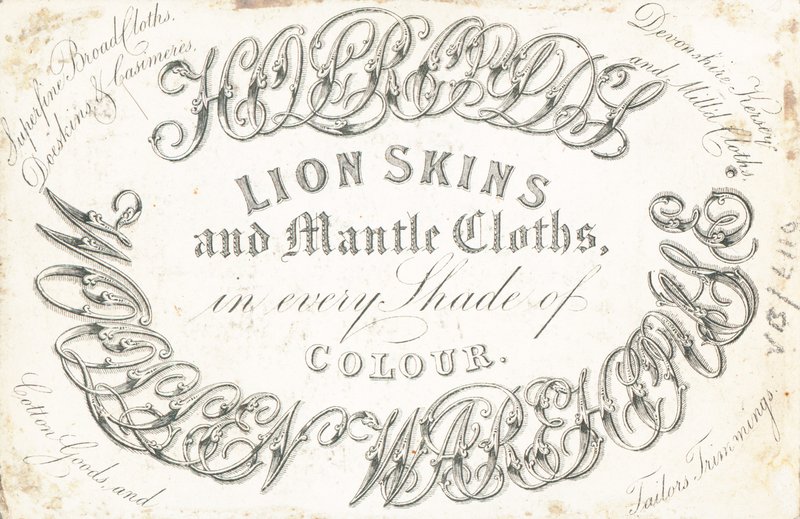 Superfine Broad Cloths.
Doeskins & Casimeres.
Devonshire Kersey
and Mill'd Cloths.
LION SKINS
and Mantle Cloths,
in every Shade of
COLOUR.
WOOLLEN WAREHOUSE
Cotton Goods, and
Tailors Trimmings.